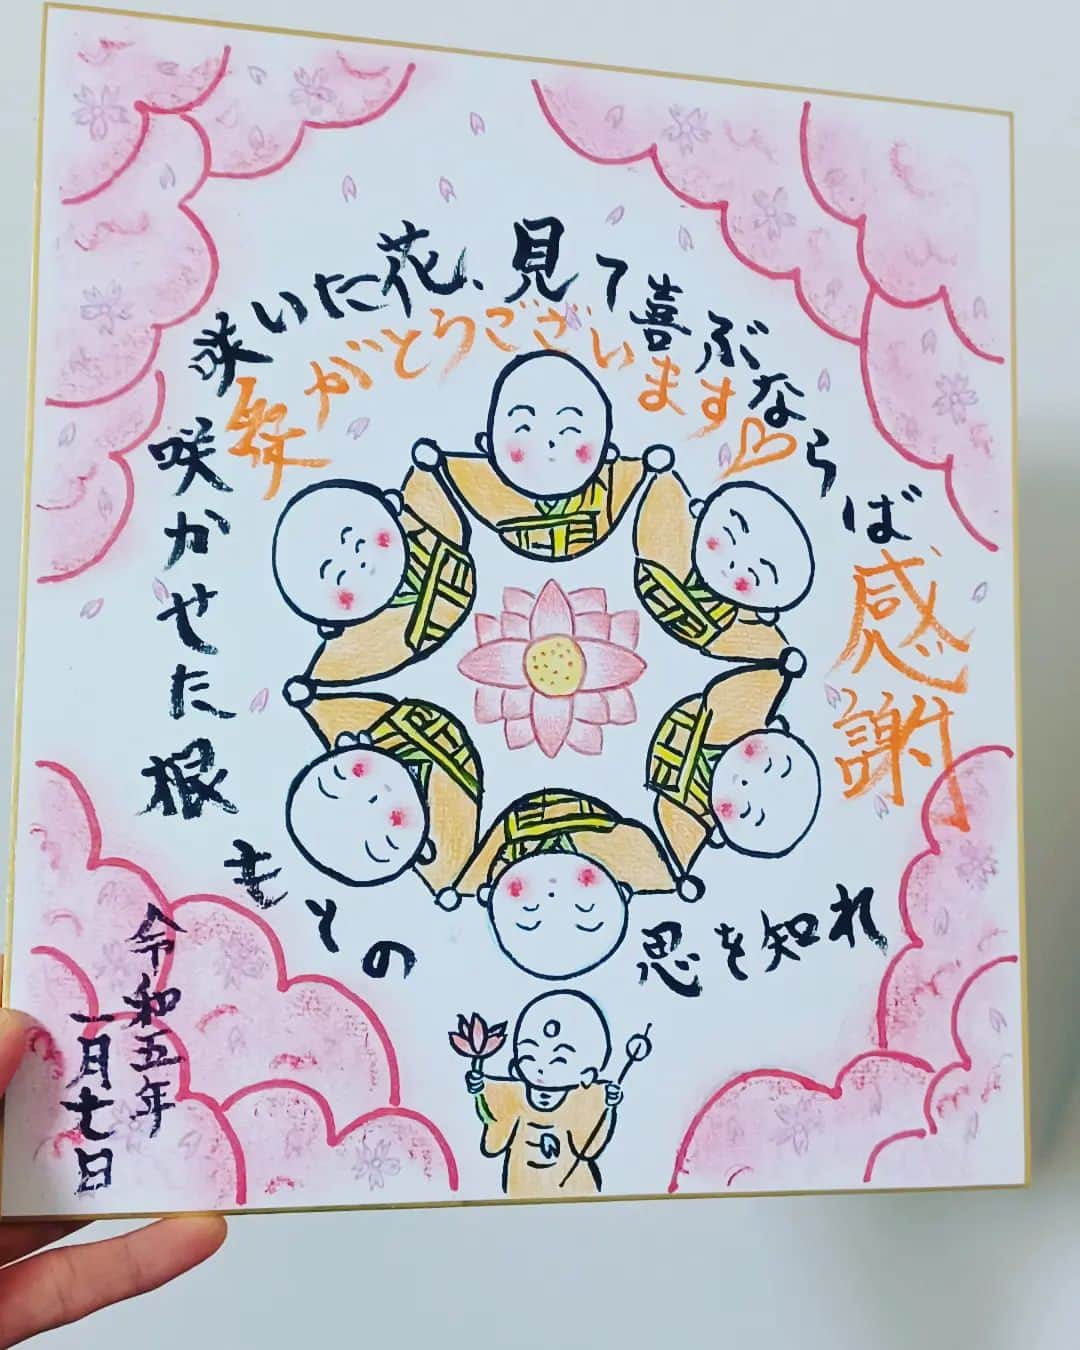 咲いた花、見て喜ぶならば
咲かせた根もとの恩を知れ
がとうございます
感謝
令和五年
一月七日